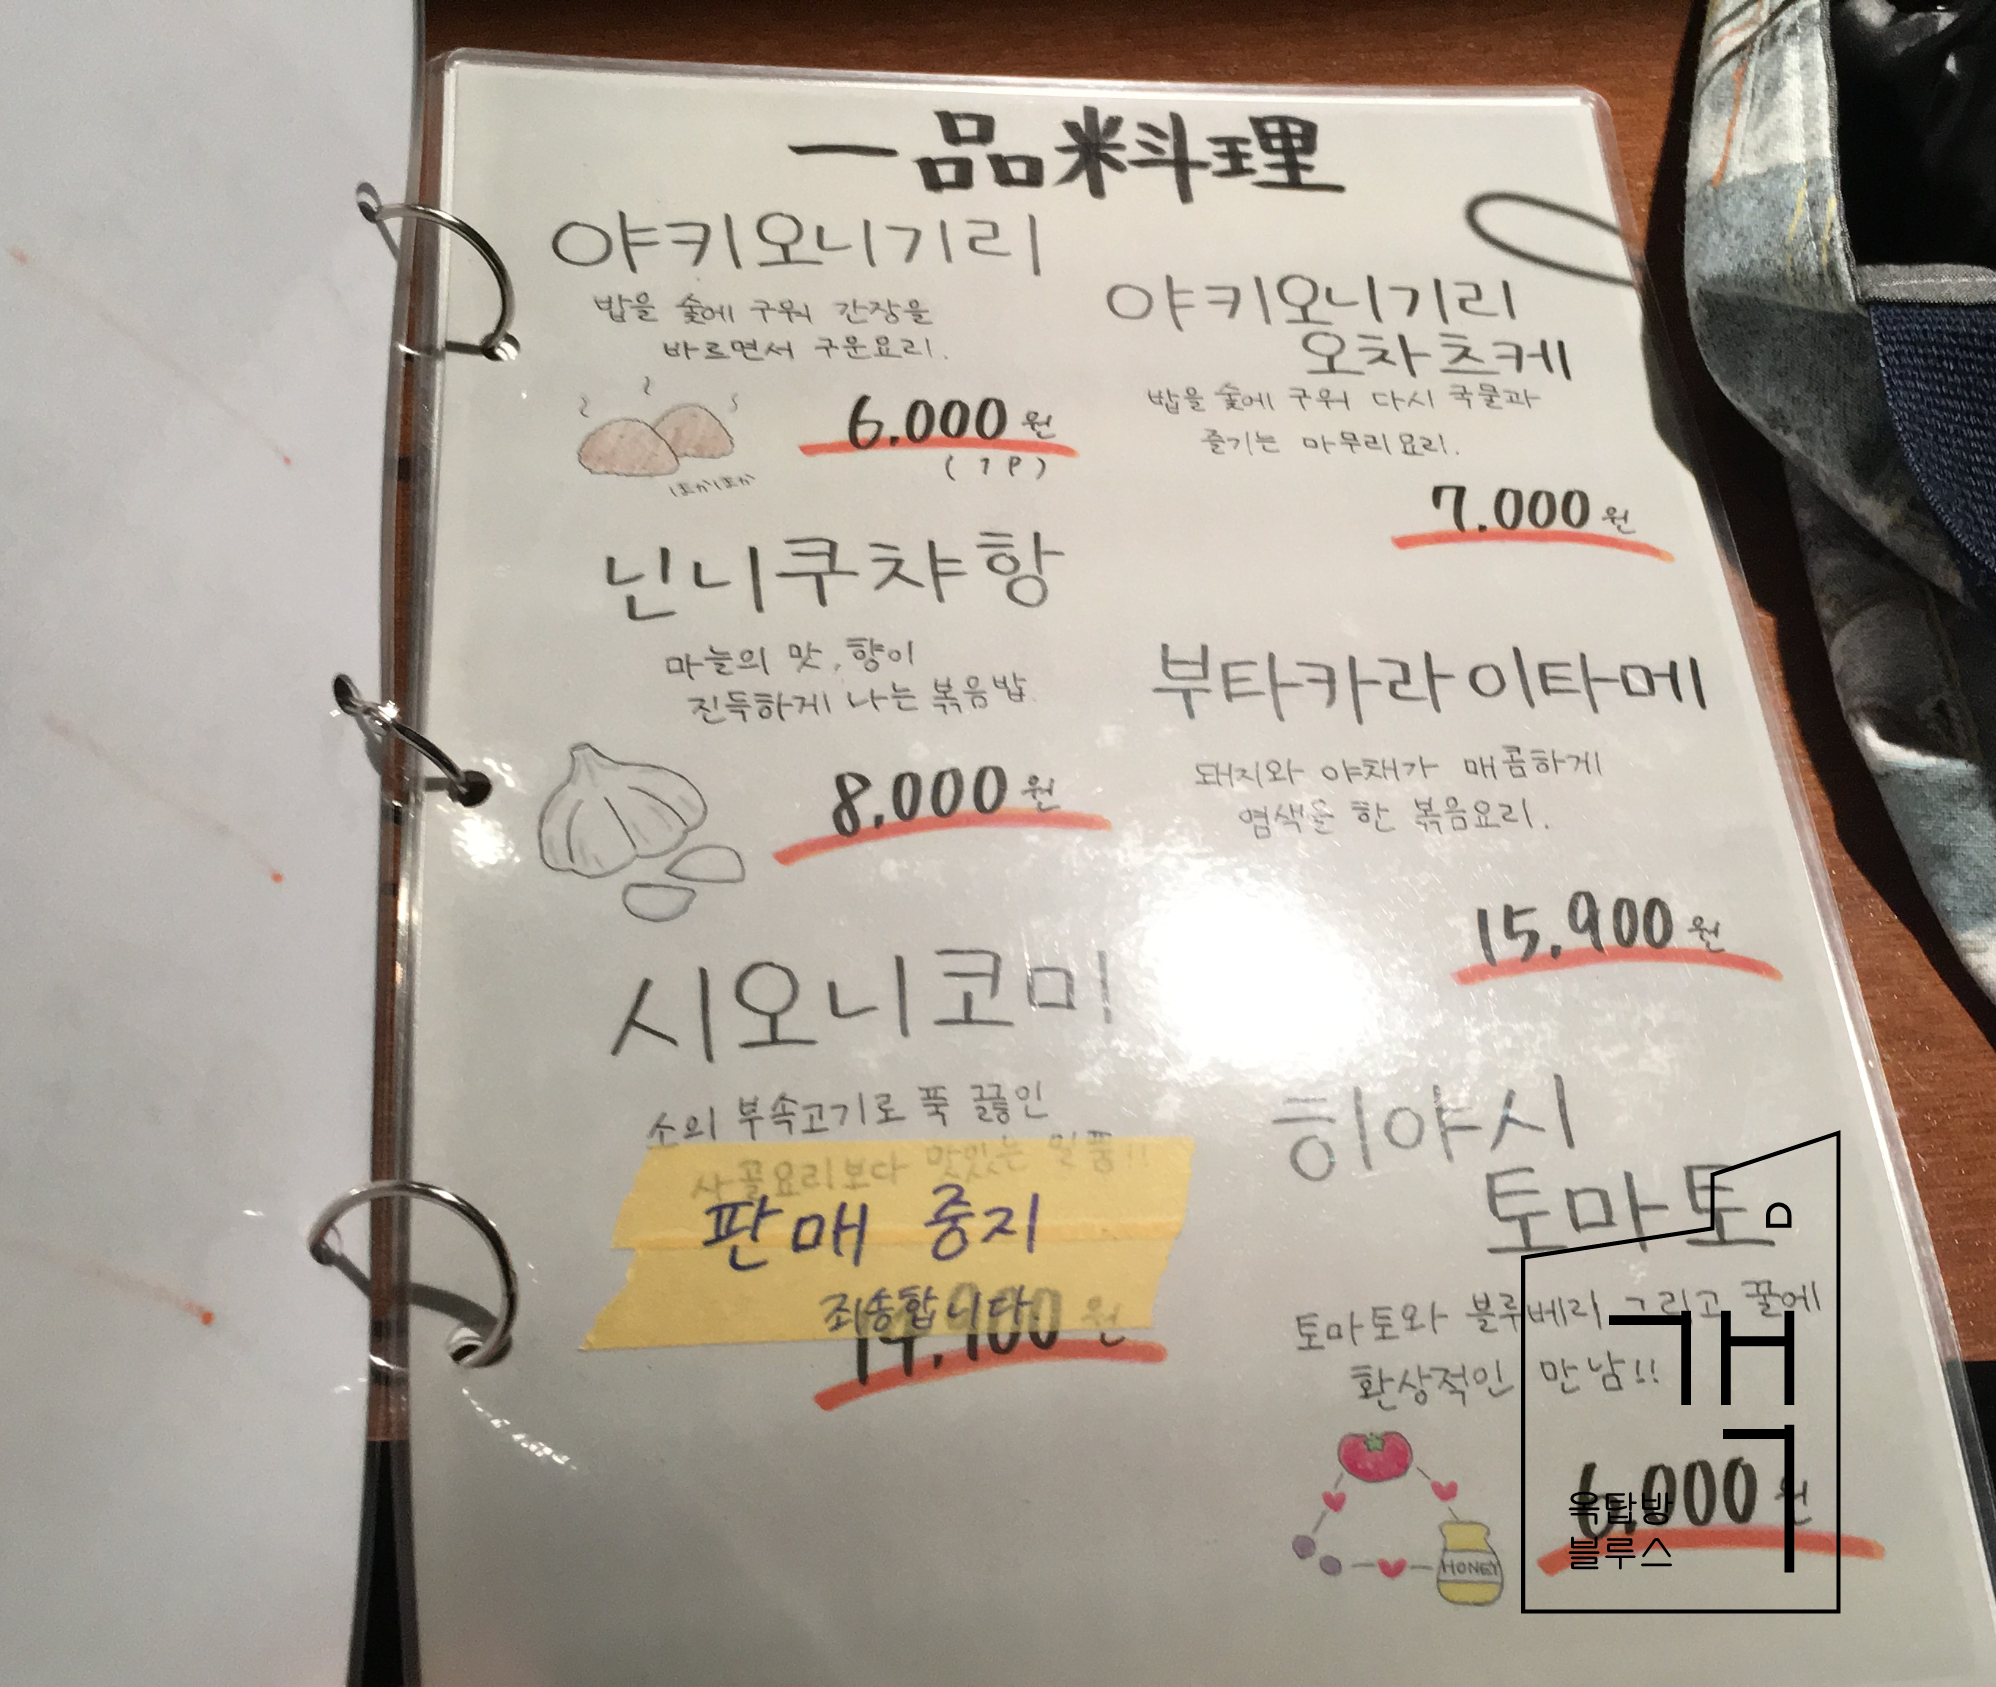 一品料理
야키오니기리
밥을 숯에 구워 간장을
바르면서 구운요리.
6.000원
(1P)
ほかほか
닌니쿠챠항
마늘의 맛, 향이
진득하게 나는 볶음밥.
8.000원
시오니코미
소의 부속고기로 푹 끓인
사골요리보다 맛있는 일품!!
판매 중지
죄송합니다
14.900원
야키오니기리
오차츠케
밥을 숯에 구워 다시 국물과
즐기는 마무리요리.
7.000원
부타카라이타메
돼지와 야채가 매콤하게
염색을 한 볶음요리.
15.900원
히야시
토마토
토마토와 블루베리 그리고 꿀에
환상적인 만남!!
HONEY
6.000원
옥탑방
블루스